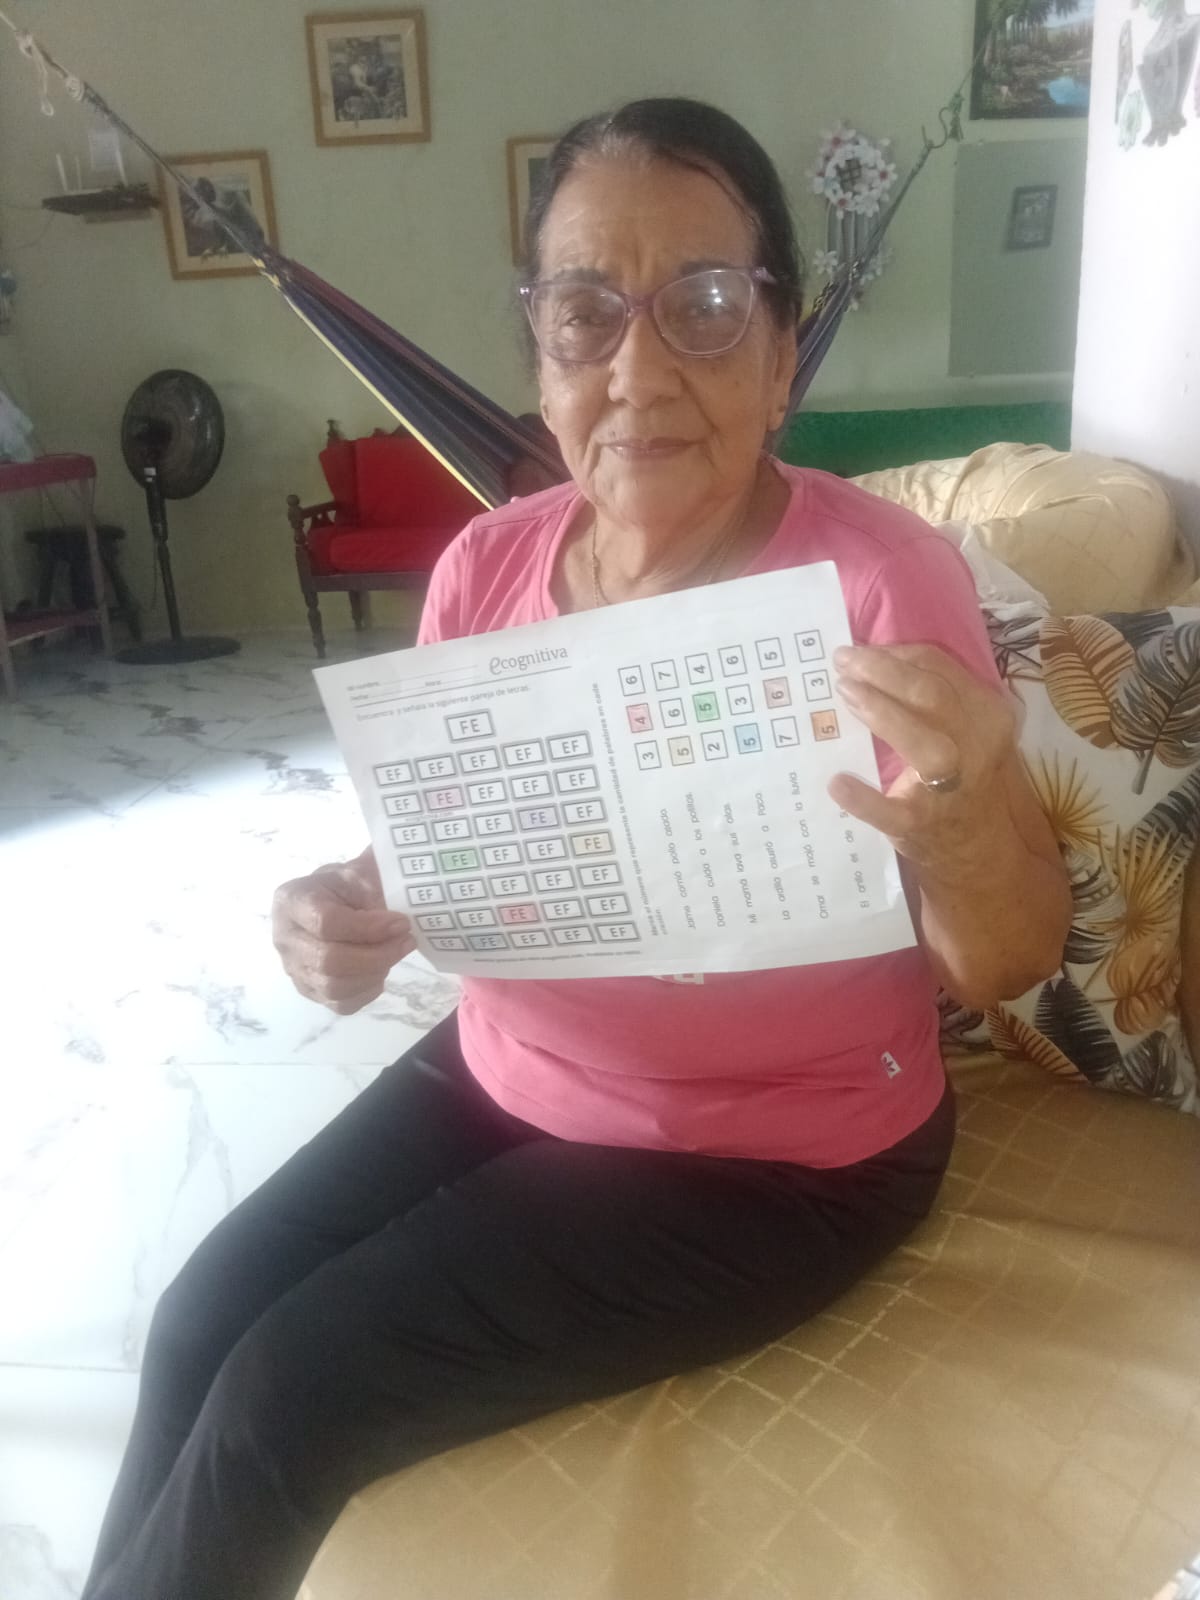 Mi nombre:
ecognitiva
Fecha: Hora:
Encuentra y señala la siguiente pareja de letras.
FE
EF EF EF EF EF
EF FE EF EF EF
EF EF EF FE EF
EF FE EF EF FE
EF EF EF EF EF
EF EF FE EF EF
EF FE EF EF EF
Marca el número que represente la cantidad de palabras en cada
oración.
Jaime comió pollo asado. 3 4 6
Daniela cuida a los pollitos. 5 6 7
Mi mamá lava sus ollas. 2 5 4
La ardilla asustó a Paco. 5 3 6
Omar se mojó con la lluvia. 7 6 5
El anillo es de 5 3 6